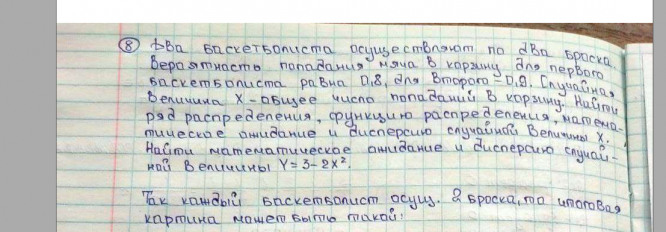 ⑧ Два баскетболиста осуществляют по два броска.
Вероятность попадания мяча в корзину для первого
баскетболиста равна 0,8, для второго - 0,9. Случайная
величина X - общее число попаданий в корзину. Найти
ряд распределения, функцию распределения, матема-
тическое ожидание и дисперсию случайной величины X.
Найти математическое ожидание и дисперсию случай-
ной величины Y = 3 - 2X².
Так каждый баскетболист осущ. 2 броска, то итоговая
картина может быть такой: